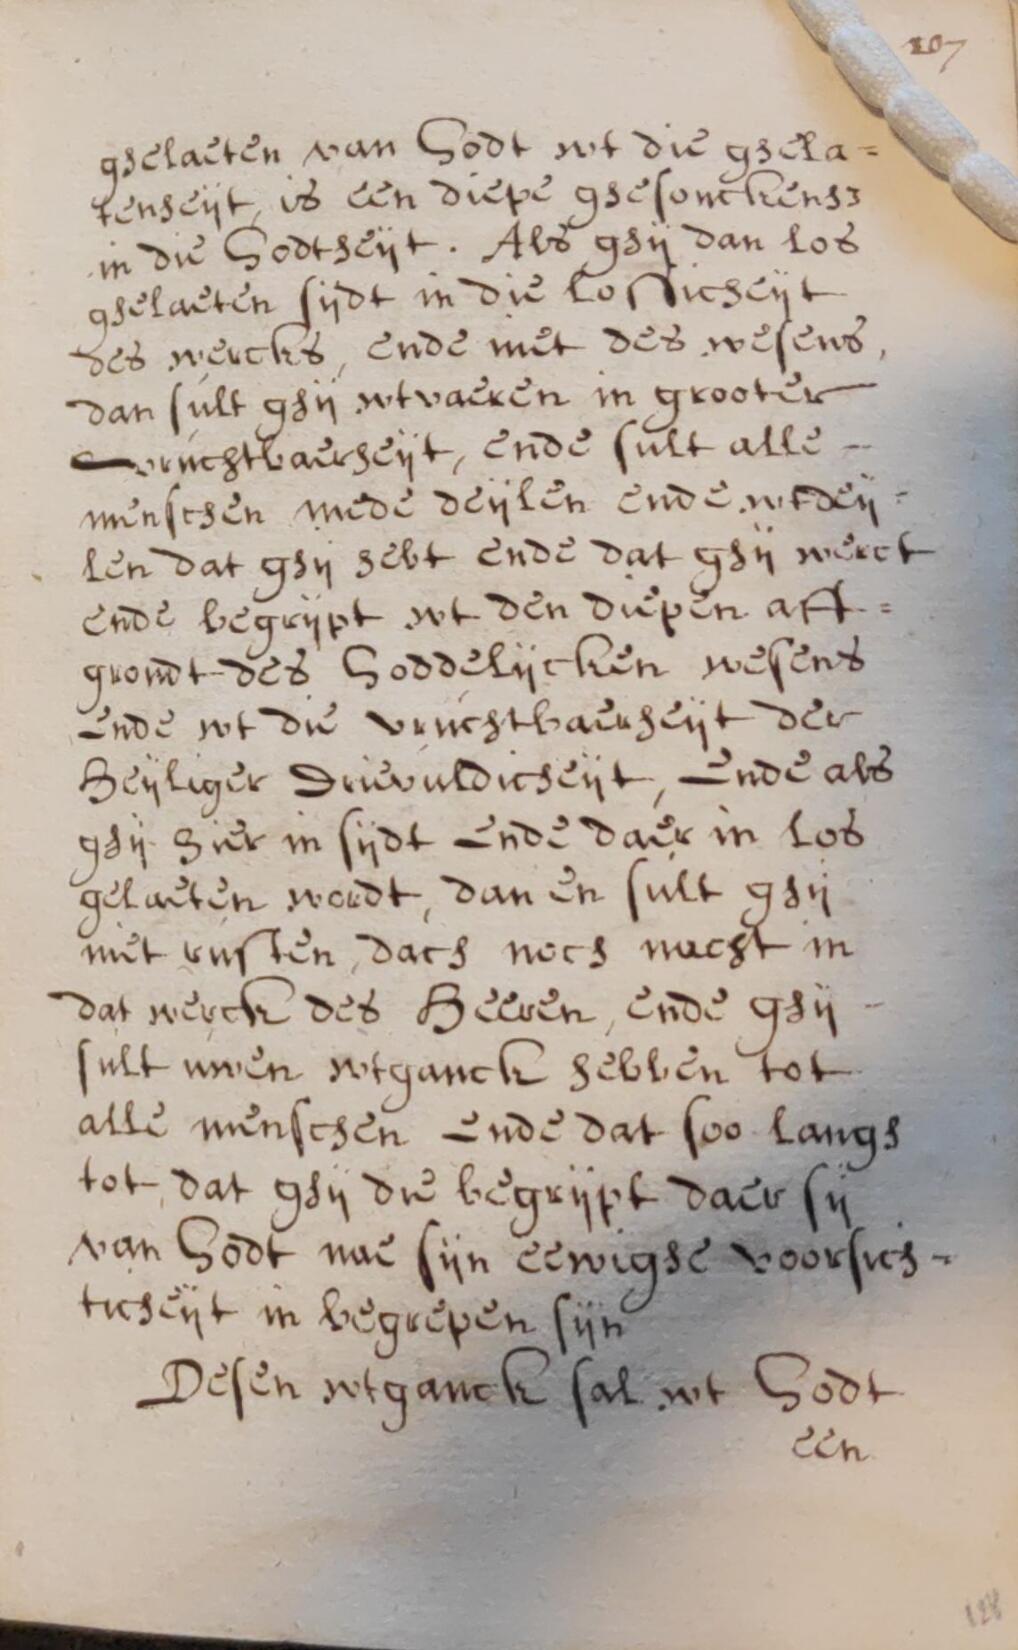 107
ghelaeten van Godt wt die ghela=
tenheijt, is een diepe ghesonckenh:
in die Godtheijt. Als ghij dan los
ghelaeten sijdt in die lossicheijt
des wercks, ende niet des wesens,
dan sult ghij wtvaeren in grooter
vruchtbaerheijt, ende sult alle -
menschen mede deijlen ende wtdeij=
len dat ghij hebt ende dat ghij werct
ende begrijpt wt den diepen aff=
grondt des Goddelijcken wesens
Ende wt die vruchtbaerheijt der
Heijliger Drievuldicheijt, Ende als
ghij hier in sijdt Ende daer in los
gelaeten wordt, dan en sult ghij
niet rusten, dach noch nacht in
dat werck des Heeren, ende ghij -
sult uwen wtganck hebben tot
alle menschen Ende dat soo langh
tot, dat ghij die begrijpt daer sij
van Godt nae sijn eewighe voorsich-
ticheijt in begrepen sijn
Desen wtganck sal wt Godt
een
128